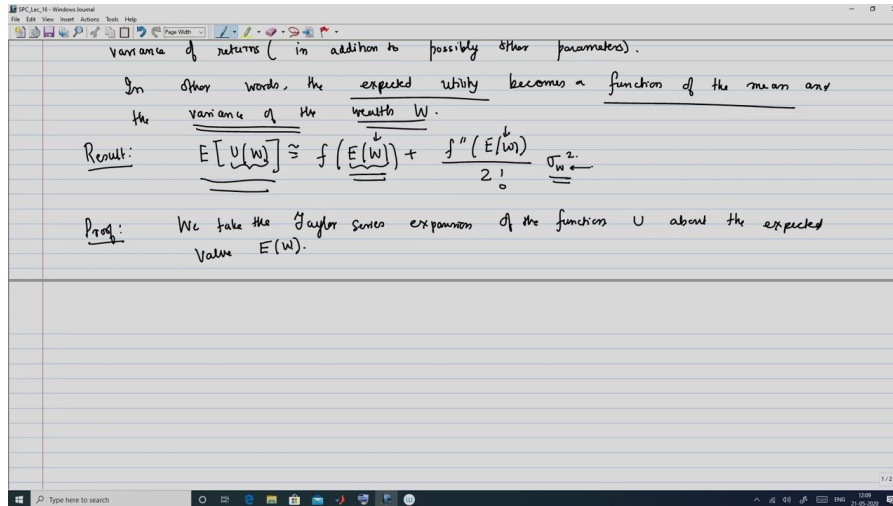 SPC_Lec_16 - Windows Journal
File Edit View Insert Actions Tools Help
Page Width
variance of returns ( in addition to possibly other parameters).
In other words, the expected utility becomes a function of the mean and
the variance of the wealth W.
Result: E[U(W)] ≅ f(E(W)) + f''(E(W)) / 2! σ_W^2.
Proof: We take the Taylor series expansion of the function U about the expected
value E(W).
1/2
Type here to search
ENG
12:09
21-05-2020